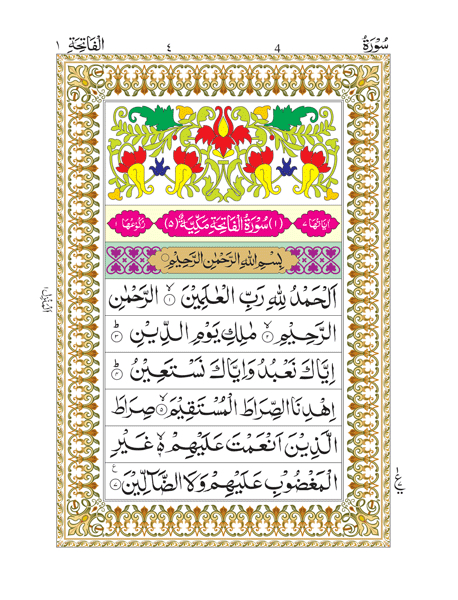 سُوْرَةُ 4 ٤ الْفَاتِحَةِ ١
اٰیَاتُهَا ٧ (١) سُوْرَةُ الْفَاتِحَةِ مَكِّيَّةٌ (٥) رُكُوْعُهَا ١
بِسْمِ اللهِ الرَّحْمٰنِ الرَّحِيْمِ
اَلْحَمْدُ لِلّٰهِ رَبِّ الْعٰلَمِيْنَ ۙ ١ الرَّحْمٰنِ
الرَّحِيْمِ ۙ ٢ مٰلِكِ يَوْمِ الدِّيْنِ ؕ ٣
اِيَّاكَ نَعْبُدُ وَاِيَّاكَ نَسْتَعِيْنُ ؕ ٤
اِهْدِنَا الصِّرَاطَ الْمُسْتَقِيْمَ ۙ ٥ صِرَاطَ
الَّذِيْنَ اَنْعَمْتَ عَلَيْهِمْ ۙ ٦ غَيْرِ
الْمَغْضُوْبِ عَلَيْهِمْ وَلَا الضَّآلِّيْنَ ٧